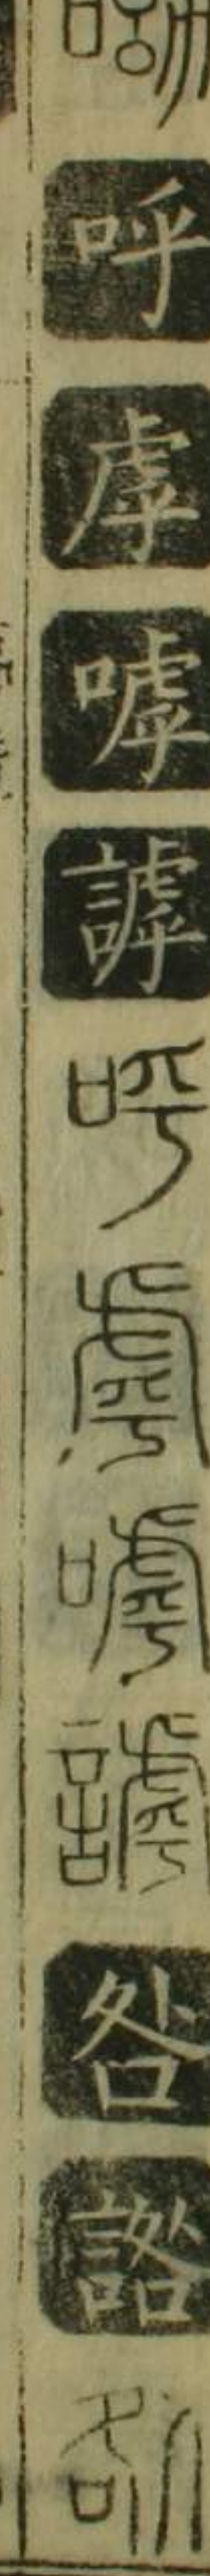 呼虖嘑謼呼虖嘑謼咎諮